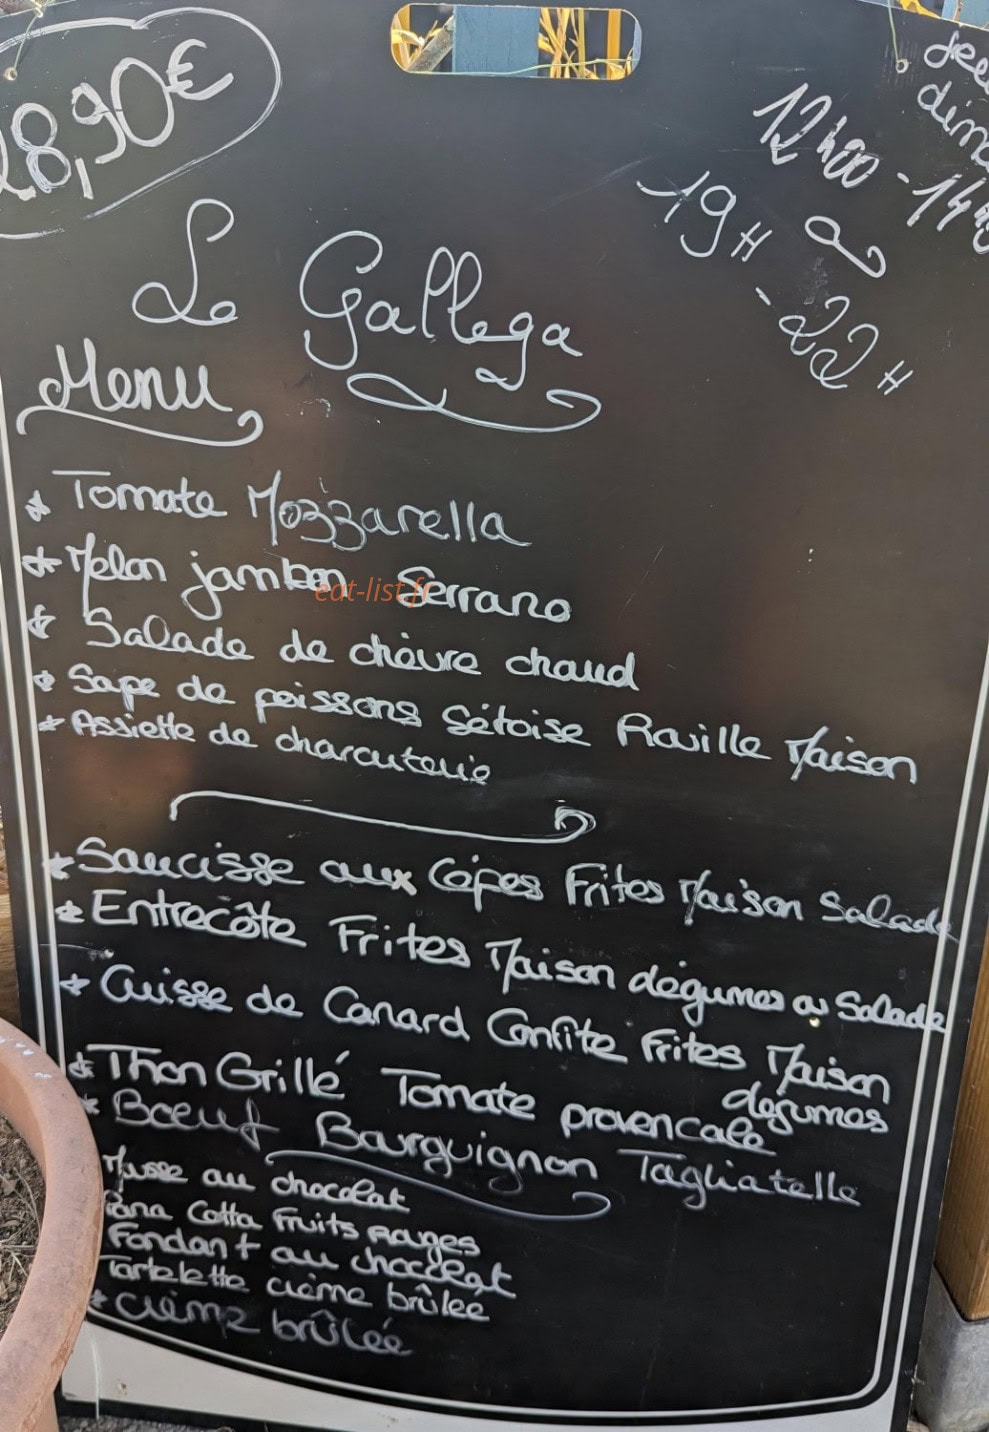 28,90€
12h00-14h
19H
-22H
Le Gallega
Menu
* Tomate Mozzarella
* Melon jambon Serrano
eat-list.fr
* Salade de chèvre chaud
* Sape de poissons Sétoise Rouille Maison
* Assiette de charcuterie
* Saucisse aux Cèpes Frites Maison Salade
* Entrecôte Frites Maison légumes ou Salade
* Cuisse de Canard Confite Frites Maison
légumes
* Thon Grillé Tomate provencale
* Bœuf Bourguignon Tagliatelle
Musse au chocolat
Pana Cotta Fruits Rouges
Fondant au chocolat
Tartelette crème brûlée
* Crème brûlée